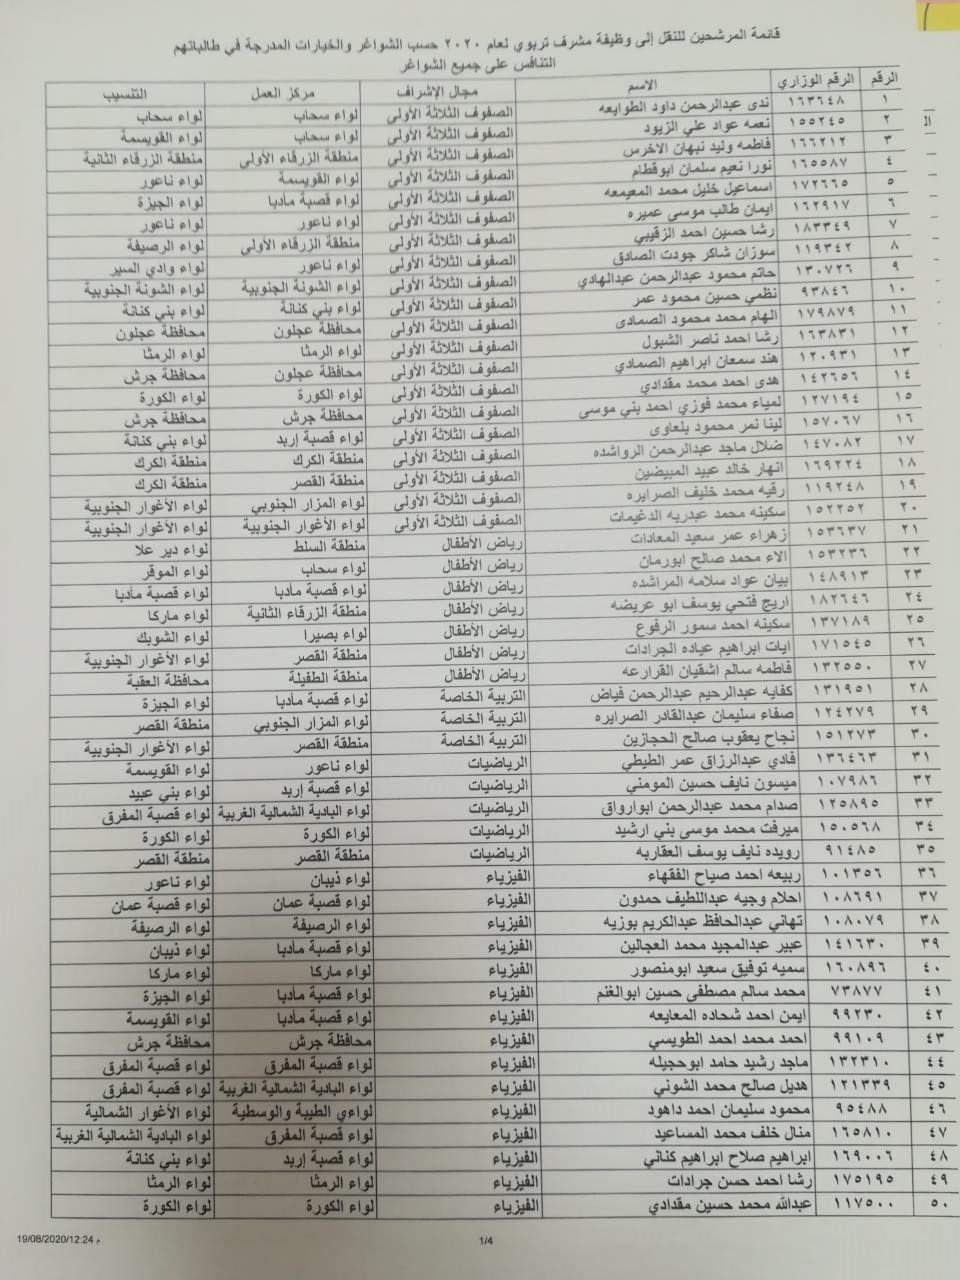 قائمة المرشحين للنقل إلى وظيفة مشرف تربوي لعام ٢٠٢٠ حسب الشواغر والخيارات المدرجة في طالباتهم
التنافس على جميع الشواغر
الرقم الرقم الوزاري الاسم مجال الإشراف مركز العمل التنسيب
١ ١٦٣٦٤٨ ندى عبدالرحمن داود الطوايعه الصفوف الثلاثة الأولى لواء سحاب لواء سحاب
٢ ١٥٥٢٤٥ نعمه عواد علي الزيود الصفوف الثلاثة الأولى لواء سحاب لواء القويسمة
٣ ١٦٦٢١٢ فاطمه وليد نبهان الاخرس الصفوف الثلاثة الأولى منطقة الزرقاء الأولى منطقة الزرقاء الثانية
٤ ١٦٥٥٨٧ نورا نعيم سلمان ابوقطام الصفوف الثلاثة الأولى لواء القويسمة لواء ناعور
٥ ١٧٢٦٦٥ اسماعيل خليل محمد المعيمعه الصفوف الثلاثة الأولى لواء قصبة مأدبا لواء الجيزة
٦ ١٦٢٩١٧ ايمان طالب موسى عميره الصفوف الثلاثة الأولى لواء ناعور لواء ناعور
٧ ١٨٣٣٤٩ رشا حسين احمد الزقيبي الصفوف الثلاثة الأولى منطقة الزرقاء الأولى لواء الرصيفة
٨ ١١٩٣٤٢ سوزان شاكر جودت الصادق الصفوف الثلاثة الأولى لواء ناعور لواء وادي السير
٩ ١٣٠٧٢٦ حاتم محمود عبدالرحمن عبدالهادي الصفوف الثلاثة الأولى لواء الشونة الجنوبية لواء الشونة الجنوبية
١٠ ٩٣٨٤٦ نظمي حسين محمود عمر الصفوف الثلاثة الأولى لواء بني كنانة لواء بني كنانة
١١ ١٧٩٨٧٩ الهام محمد محمود الصمادى الصفوف الثلاثة الأولى محافظة عجلون محافظة عجلون
١٢ ١٦٣٨٣١ رشا احمد ناصر الشبول الصفوف الثلاثة الأولى لواء الرمثا لواء الرمثا
١٣ ١٢٠٩٣١ هند سمعان ابراهيم الصمادي الصفوف الثلاثة الأولى محافظة عجلون محافظة جرش
١٤ ١٤٢٦٥٦ هدى احمد محمد مقدادي الصفوف الثلاثة الأولى لواء الكورة لواء الكورة
١٥ ١٢٧١٩٤ لمياء محمد فوزي احمد بني موسى الصفوف الثلاثة الأولى محافظة جرش محافظة جرش
١٦ ١٥٧٠٦٧ لينا نمر محمود بلعاوى الصفوف الثلاثة الأولى لواء قصبة إربد لواء بني كنانة
١٧ ١٤٧٠٨٢ ضلال ماجد عبدالرحمن الرواشده الصفوف الثلاثة الأولى منطقة الكرك منطقة الكرك
١٨ ١٦٩٢٢٤ انهار خالد عبيد المبيضين الصفوف الثلاثة الأولى منطقة القصر منطقة الكرك
١٩ ١١٩٢٤٨ رقيه محمد خليف الصرايره الصفوف الثلاثة الأولى لواء المزار الجنوبي لواء الأغوار الجنوبية
٢٠ ١٥٢٢٥٢ سكينه محمد عبدربه الدغيمات الصفوف الثلاثة الأولى لواء الأغوار الجنوبية لواء الأغوار الجنوبية
٢١ ١٥٣٦٣٧ زهراء عمر سعيد المعادات رياض الأطفال منطقة السلط لواء دير علا
٢٢ ١٥٣٢٣٦ الاء محمد صالح ابورمان رياض الأطفال لواء سحاب لواء الموقر
٢٣ ١٤٨٩١٣ بيان عواد سلامه المراشده رياض الأطفال لواء قصبة مأدبا لواء قصبة مأدبا
٢٤ ١٨٢٦٤٦ اريج فتحي يوسف ابو عريضه رياض الأطفال منطقة الزرقاء الثانية لواء ماركا
٢٥ ١٣٧١٨٩ سكينه احمد سمور الرفوع رياض الأطفال لواء بصيرا لواء الشوبك
٢٦ ١٧١٥٤٥ ايات ابراهيم عياده الجرادات رياض الأطفال منطقة القصر لواء الأغوار الجنوبية
٢٧ ١٣٢٥٥٠ فاطمه سالم اشقيان القرارعه رياض الأطفال منطقة الطفيلة محافظة العقبة
٢٨ ١٣١٩٥١ كفايه عبدالرحيم عبدالرحمن فياض التربية الخاصة لواء قصبة مأدبا لواء الجيزة
٢٩ ١٢٤٢٧٩ صفاء سليمان عبدالقادر الصرايره التربية الخاصة لواء المزار الجنوبي منطقة القصر
٣٠ ١٥١٢٧٣ نجاح يعقوب صالح الحجازين التربية الخاصة منطقة القصر لواء الأغوار الجنوبية
٣١ ١٣٦٤٦٣ فادي عبدالرزاق عمر الطيطي الرياضيات لواء ناعور لواء القويسمة
٣٢ ١٠٧٩٨٦ ميسون نايف حسين المومني الرياضيات لواء قصبة إربد لواء بني عبيد
٣٣ ١٢٥٨٩٥ صدام محمد عبدالرحمن ابوارواق الرياضيات لواء البادية الشمالية الغربية لواء قصبة المفرق
٣٤ ١٥٠٥٦٨ ميرفت محمد موسى بني ارشيد الرياضيات لواء الكورة لواء الكورة
٣٥ ٩١٤٨٥ رويده نايف يوسف العقاربه الرياضيات منطقة القصر منطقة القصر
٣٦ ١٠١٣٥٦ ربيعه احمد صياح الفقهاء الفيزياء لواء ذيبان لواء ناعور
٣٧ ١٠٨٦٩١ احلام وجيه عبداللطيف حمدون الفيزياء لواء قصبة عمان لواء قصبة عمان
٣٨ ١٠٨٠٧٩ تهاني عبدالحافظ عبدالكريم بوزيه الفيزياء لواء الرصيفة لواء الرصيفة
٣٩ ١٤١٦٣٠ عبير عبدالمجيد محمد العجالين الفيزياء لواء قصبة مأدبا لواء ذيبان
٤٠ ١٦٠٨٩٦ سميه توفيق سعيد ابومنصور الفيزياء لواء ماركا لواء ماركا
٤١ ٧٣٨٧٧ محمد سالم مصطفى حسين ابوالغنم الفيزياء لواء قصبة مأدبا لواء الجيزة
٤٢ ٩٩٢٣٠ ايمن احمد شحاده المعايعه الفيزياء لواء قصبة مأدبا لواء القويسمة
٤٣ ٩٩١٠٩ احمد محمد احمد الطويسي الفيزياء محافظة جرش محافظة جرش
٤٤ ١٣٢٣١٠ ماجد رشيد حامد ابوحجيله الفيزياء لواء قصبة المفرق لواء قصبة المفرق
٤٥ ١٢١٣٣٩ هديل صالح محمد الشوني الفيزياء لواء البادية الشمالية الغربية لواء قصبة المفرق
٤٦ ٩٥٤٨٨ محمود سليمان احمد داهود الفيزياء لواءي الطيبة والوسطية لواء الأغوار الشمالية
٤٧ ١٦٥٨١٠ منال خلف محمد المساعيد الفيزياء لواء قصبة المفرق لواء البادية الشمالية الغربية
٤٨ ١٦٩٠٠٦ ابراهيم صلاح ابراهيم كناني الفيزياء لواء قصبة إربد لواء بني كنانة
٤٩ ١٧٥١٩٥ رشا احمد حسن جرادات الفيزياء لواء الرمثا لواء الرمثا
٥٠ ١١٧٥٠٠ عبدالله محمد حسين مقدادي الفيزياء لواء الكورة لواء الكورة
1/4
19/08/2020/12:24 م